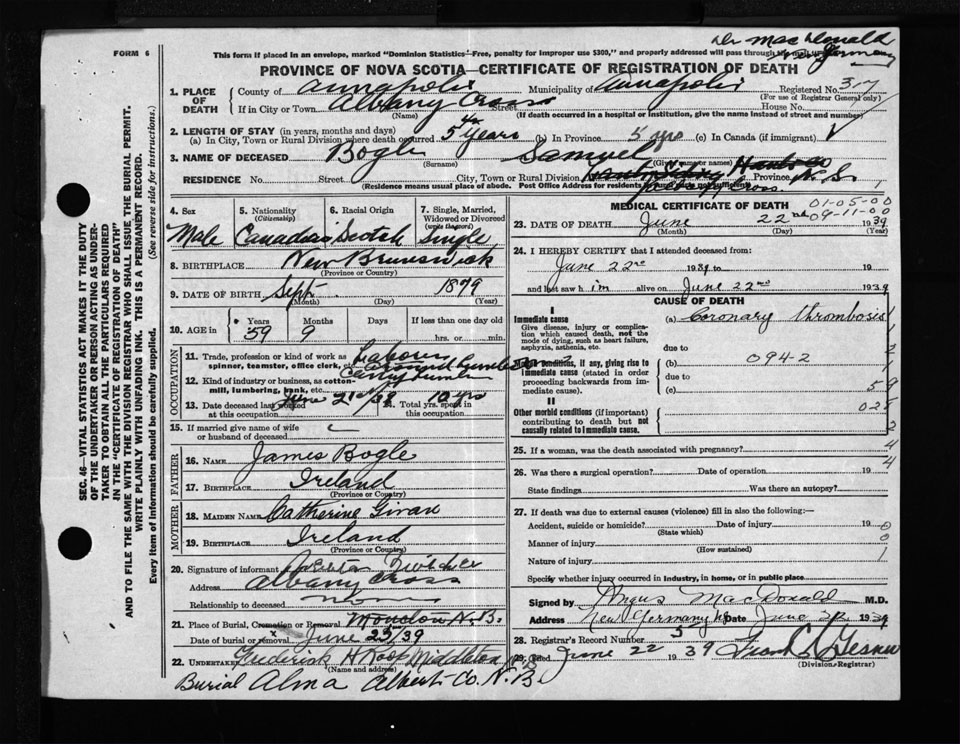 Dr MacDonald
New Germany
FORM 6
This form if placed in an envelope, marked "Dominion Statistics"-Free, penalty for improper use $300," and properly addressed will pass through the mail
PROVINCE OF NOVA SCOTIA—CERTIFICATE OF REGISTRATION OF DEATH
1. PLACE OF DEATH County of Annapolis Municipality of Annapolis Registered No. 37
(For use of Registrar General only)
If in City or Town Albany Cross Street House No.
(Name) (If death occurred in a hospital or institution, give the name instead of street and number)
2. LENGTH OF STAY (in years, months and days)
(a) In City, Town or Rural Division where death occurred 5 years (b) In Province 5 yrs (c) In Canada (if immigrant)
3. NAME OF DECEASED Bogle Samuel
(Surname) (Given or names)
RESIDENCE No. Street City, Town or Rural Division Province N.S.
(Residence means usual place of abode. Post Office Address for residents
4. Sex 5. Nationality 6. Racial Origin 7. Single, Married, Widowed or Divorced
(Citizenship) (write the word)
Male Canadian Scotch Single
8. BIRTHPLACE New Brunswick
(Province or Country)
9. DATE OF BIRTH Sept. 1879
(Month) (Day) (Year)
10. AGE in Years Months Days If less than one day old
59 9 hrs. or min.
OCCUPATION
11. Trade, profession or kind of work as spinner, teamster, office clerk, etc. Labourer
12. Kind of industry or business, as cotton-mill, lumbering, bank, etc.
13. Date deceased last worked at this occupation June 21st/38 14. Total yrs. spent in this occupation 10 yrs
15. If married give name of wife or husband of deceased
FATHER
16. NAME James Bogle
17. BIRTHPLACE Ireland
(Province or Country)
MOTHER
18. MAIDEN NAME Catherine Givan
19. BIRTHPLACE Ireland
(Province or Country)
20. Signature of informant
Address Albany Cross
Relationship to deceased
21. Place of Burial, Cremation or Removal Moncton N.B.
Date of burial or removal June 25/39
22. UNDERTAKER Frederick H. Middleton N.S
(Name and address)
Burial Alma Albert Co. N.B
MEDICAL CERTIFICATE OF DEATH 01-05-00
09-11-00
23. DATE OF DEATH June 22nd 1939
(Month) (Day) (Year)
24. I HEREBY CERTIFY that I attended deceased from:
June 22nd 1939 to 19
and last saw him alive on June 22nd 1939
CAUSE OF DEATH
I
Immediate cause (a) Coronary thrombosis
Give disease, injury or complication which caused death, not the mode of dying, such as heart failure, asphyxia, asthenia, etc.
due to
Morbid conditions, if any, giving rise to immediate cause (stated in order proceeding backwards from immediate cause). (b) 094-2
due to
(c)
II
Other morbid conditions (if important) contributing to death but not causally related to immediate cause.
25. If a woman, was the death associated with pregnancy?
26. Was there a surgical operation? Date of operation 19
State findings Was there an autopsy?
27. If death was due to external causes (violence) fill in also the following:—
Accident, suicide or homicide? Date of injury 19
(State which)
Manner of injury
(How sustained)
Nature of injury
Specify whether injury occurred in industry, in home, or in public place
Signed by Angus MacDonald M.D.
Address New Germany NS Date June 22 1939
28. Registrar's Record Number 5
29. Filed June 22 1939
(Division Registrar)
SEC. 46—VITAL STATISTICS ACT MAKES IT THE DUTY OF THE UNDERTAKER OR PERSON ACTING AS UNDERTAKER TO OBTAIN ALL THE PARTICULARS REQUIRED IN THE "CERTIFICATE OF REGISTRATION OF DEATH" AND TO FILE THE SAME WITH THE DIVISION REGISTRAR WHO SHALL ISSUE THE BURIAL PERMIT.
WRITE PLAINLY WITH UNFADING INK. THIS IS A PERMANENT RECORD.
Every item of information should be carefully supplied. (See reverse side for instructions.)